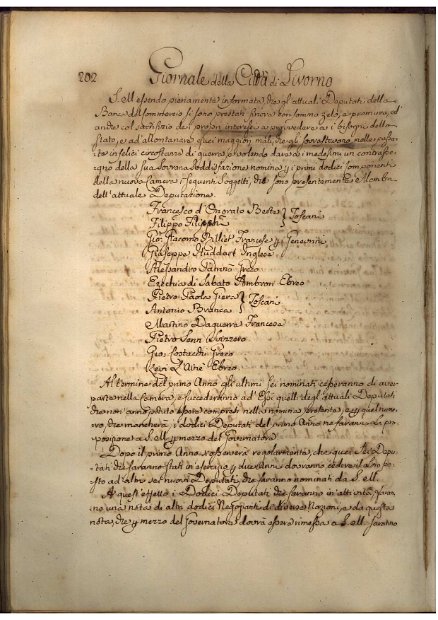 202 Giornale della Città di Livorno
S. M. essendo pienamente informata che gli attuali Deputati della
Banca del Commercio si sono prestati finora con sommo zelo, e premura, ed
anche col sacrifizio dei propri interessi a provvedere a i bisogni dello
Stato, e ad allontanare quei maggiori mali, che gli sovrastavano nelle passa-
te infelici circostanze di guerra, e volendo dare ai medesimi un contrasse-
gno della sua Sovrana Soddisfazione nomina i primi dodici componenti
della nuova Camera i seguenti Soggetti, che sono presentemente
dell'attuale Deputazione.
Francesco d'Onorato Berte
Filippo Filicchi } Toscani
Gio. Giacomo Francese
Giuseppe Huddart Inglese
Alessandro Patrinò Greco
Ezechia di Sabato Ambron Ebreo
Pietro Paolo
Antonio Branca } Toscani
Martino Daguerre Francese
Pietro Senn Svizzero
Gio. Greco
Ebreo
Al termine del primo Anno gli ultimi sei nominati cesseranno di aver
parte nella Camera, e succederanno ad Essi quelli degli attuali Deputati
che non sono potuti essere compresi nella nomina presente, e quel nume-
ro, che mancherà, i dodici Deputati del primo Anno ne faranno la pro-
posizione a S. M. per mezzo del Governatore.
Dopo il primo Anno, si osserverà regolarmente, che quei Sei Depu-
tati che saranno stati in esercizio per due anni dovranno cedere il loro po-
sto ad altri sei nuovi Deputati, che saranno nominati da S. M.
A quest'effetto i Dodici Deputati che saranno in attività, faran-
no una nota di altri dodici Negozianti di diverse Nazioni, e da questa
nota, che per mezzo del Governatore dovrà essere rimessa a S. M. saranno